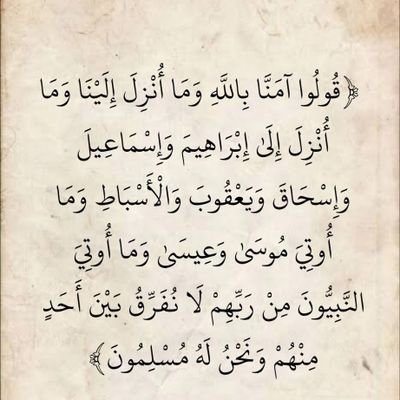 ﴿قُولُوا آمَنَّا بِاللَّهِ وَمَا أُنْزِلَ إِلَيْنَا وَمَا
أُنْزِلَ إِلَىٰ إِبْرَاهِيمَ وَإِسْمَاعِيلَ
وَإِسْحَاقَ وَيَعْقُوبَ وَالْأَسْبَاطِ وَمَا
أُوتِيَ مُوسَىٰ وَعِيسَىٰ وَمَا أُوتِيَ
النَّبِيُّونَ مِنْ رَبِّهِمْ لَا نُفَرِّقُ بَيْنَ أَحَدٍ
مِنْهُمْ وَنَحْنُ لَهُ مُسْلِمُونَ﴾